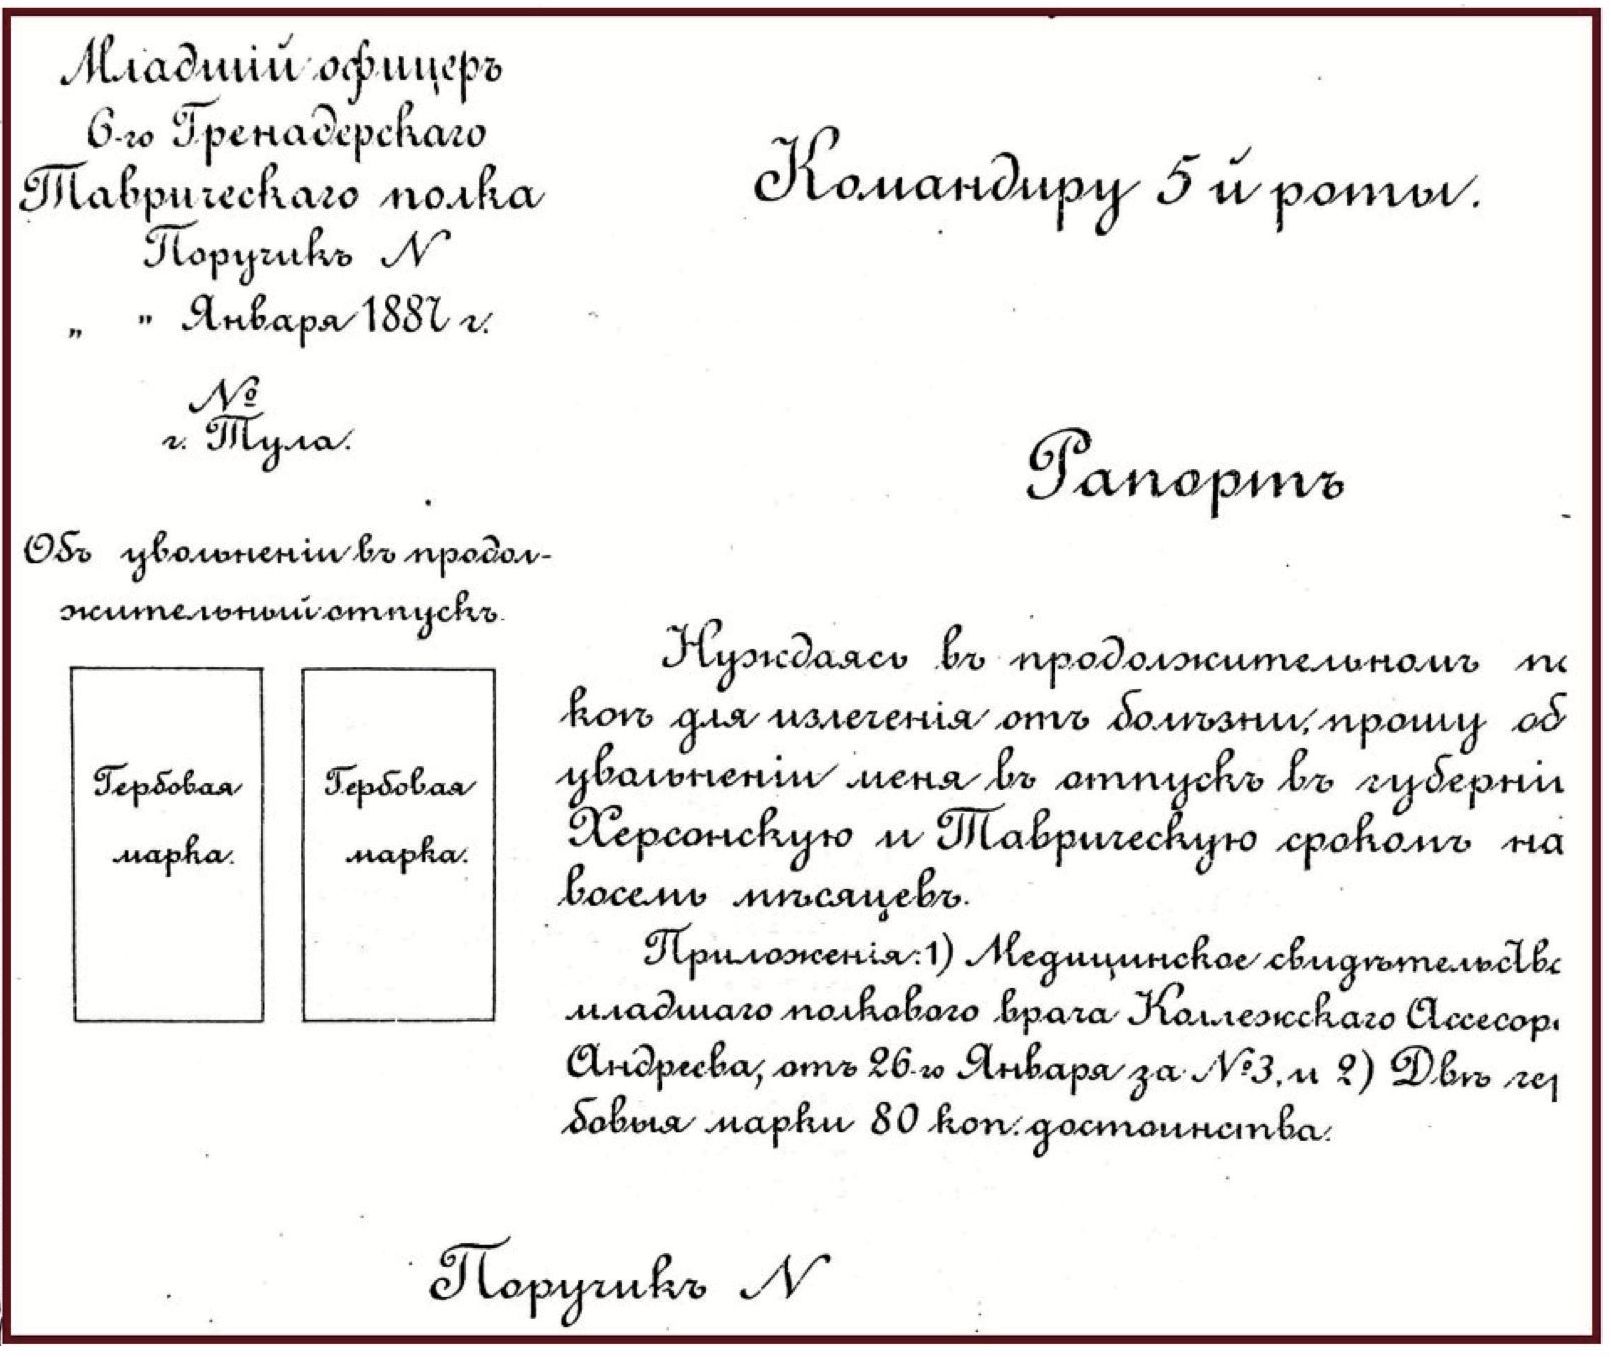 Младшій офицеръ
6-го Гренадерскаго
Таврическаго полка
Поручикъ N
„ " Января 1887 г.
№
г. Тула.
Объ увольненіи въ продол-
жительный отпускъ.
Гербовая
марка.
Гербовая
марка.
Командиру 5й роты.
Рапортъ
Нуждаясь въ продолжительномъ по
коѣ для излеченія отъ болѣзни, прошу об
увольненіи меня въ отпускъ въ губерні
Херсонскую и Таврическую срокомъ на
восемь мѣсяцевъ.
Приложенія: 1) Медицинское свидѣтельство
младшаго полковаго врача Коллежскаго Ассесор
Андреева, отъ 26-го Января за №3, и 2) Двѣ гер
бовыя марки 80 коп. достоинства.
Поручикъ N